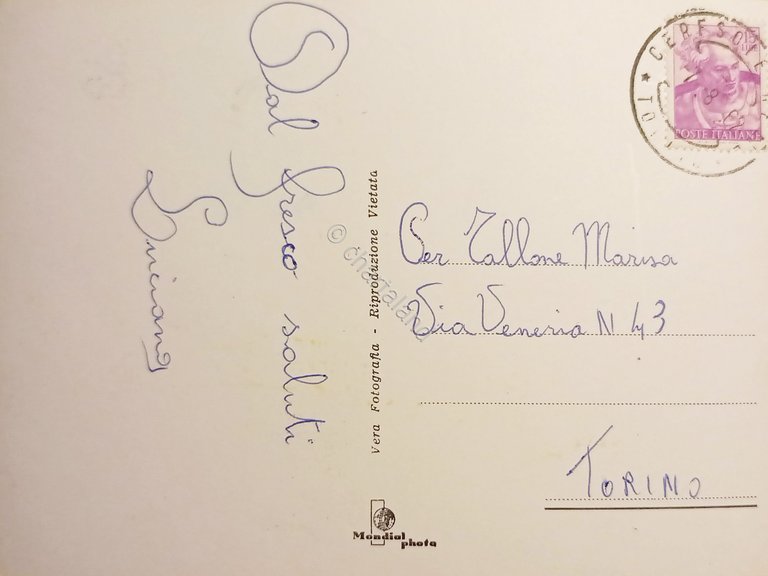 Dal fresco saluti
Luciano
Vera Fotografia - Riproduzione Vietata
Mondial
photo
CERESOLE
TORINO
15
LIRE
POSTE ITALIANE
Per Tallone Marisa
Via Veneria N 43
TORINO
© chagaland